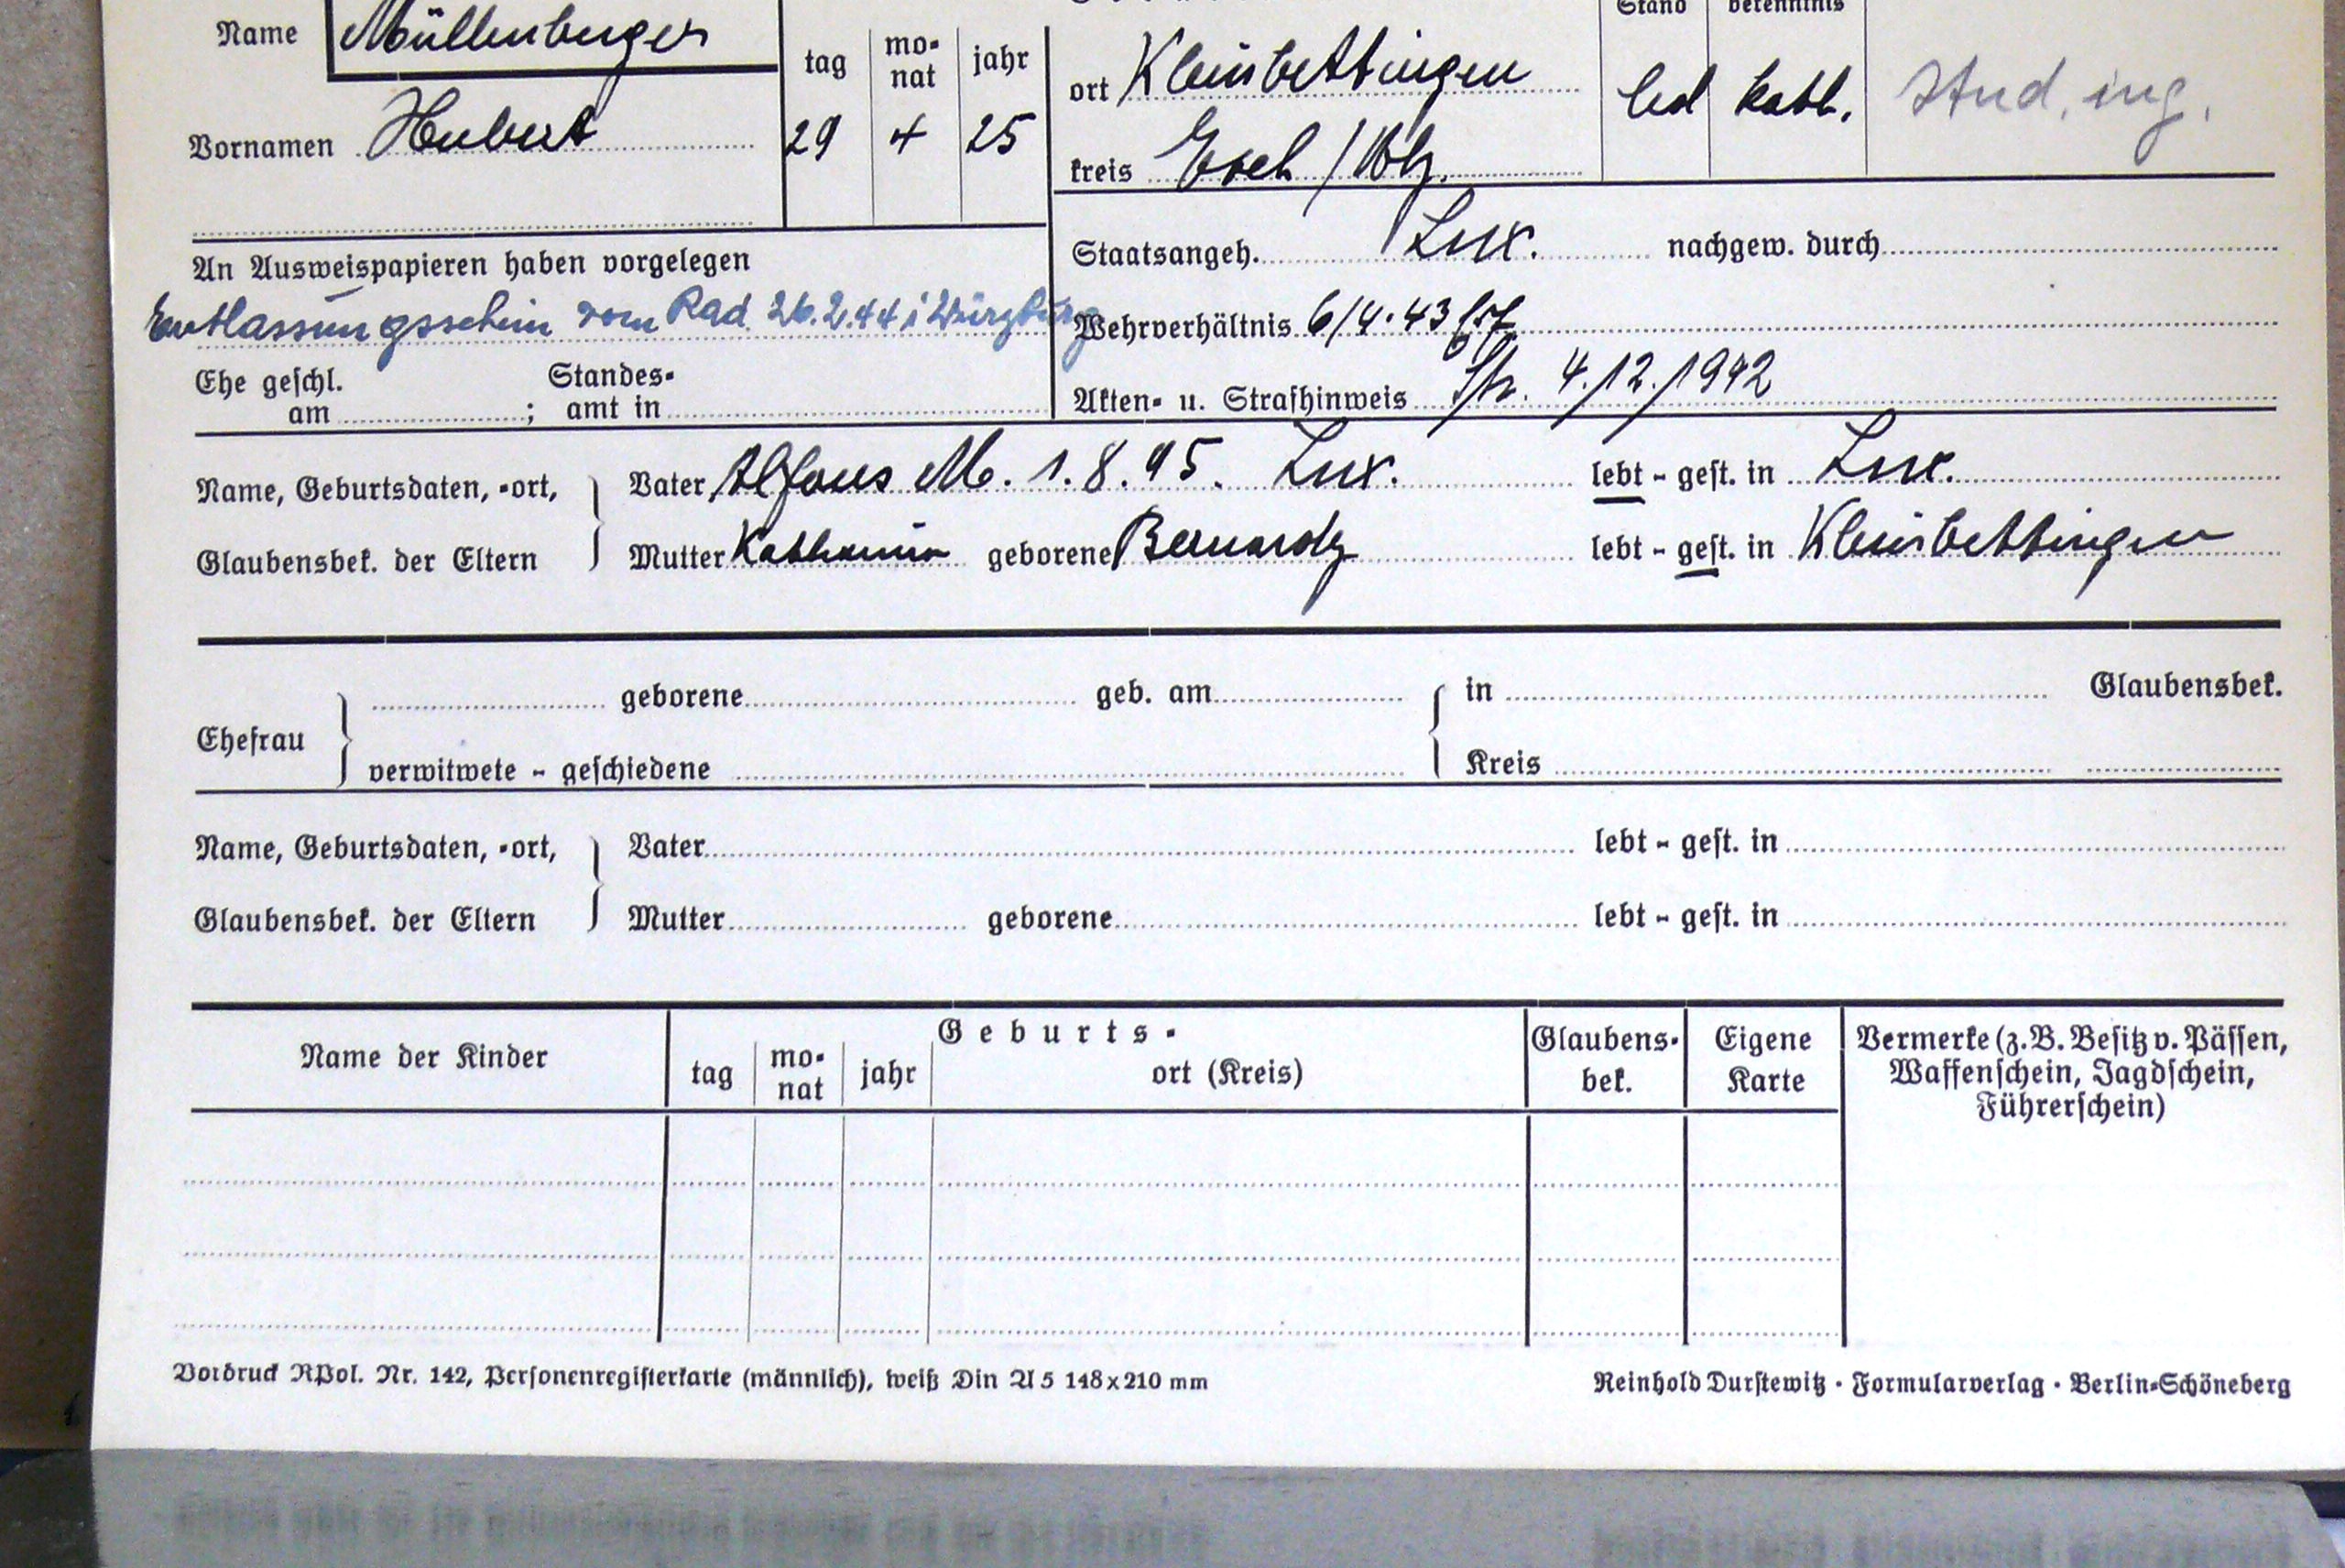 Stand bekenntnis
Name Müllenberger
tag mo-nat jahr
ort Kleinbettingen
led kath. Stud. ing.
Vornamen Hubert
29 4 25
kreis Esch / Alz.
An Ausweispapieren haben vorgelegen
Staatsangeh. Lux. nachgew. durch
Entlassungsschein vom Rad. 26.2.44 i Würzburg
Wehrverhältnis 6/4.43
Ehe geschl. am ; Standes-amt in
Akten- u. Strafhinweis Str. 4./12./1942
Name, Geburtsdaten, -ort, Vater Alfons M. 1.8.95. Lux. lebt - gest. in Lux.
Glaubensbek. der Eltern Mutter Katharina geborene Bernardy lebt - gest. in Kleinbettingen
geborene geb. am in Glaubensbek.
Ehefrau
verwitwete - geschiedene Kreis
Name, Geburtsdaten, -ort, Vater lebt - gest. in
Glaubensbek. der Eltern Mutter geborene lebt - gest. in
Name der Kinder
Geburts-
tag mo-nat jahr ort (Kreis)
Glaubens-bek.
Eigene Karte
Vermerke (z.B. Besitz v. Pässen,
Waffenschein, Jagdschein,
Führerschein)
Vordruck RPol. Nr. 142, Personenregisterkarte (männlich), weiß Din A 5 148x210 mm
Reinhold Durstewitz · Formularverlag · Berlin-Schöneberg